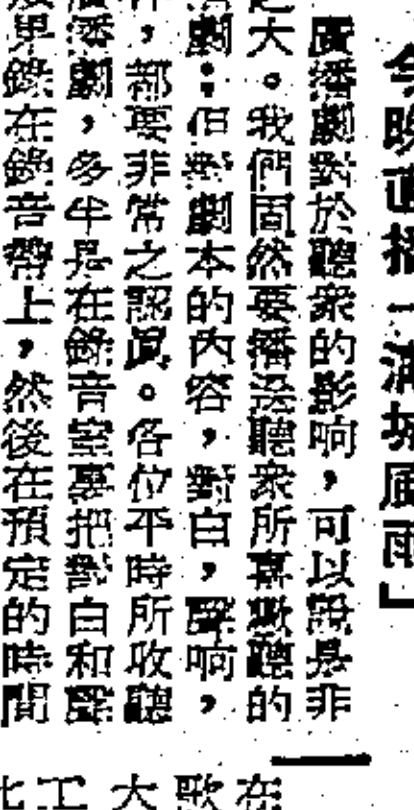 今晚直播「滿城風雨」
廣播劇對於聽衆的影响，可以說是非
之大。我們固然要播送聽衆所喜歡聽的
劇；但對劇本的內容，對白，聲响，
，都要非常之認眞。各位平時所收聽
播劇，多半是在錄音室裏把對白和聲
錄在錄音帶上，然後在預定的時間
在
歌
大
工